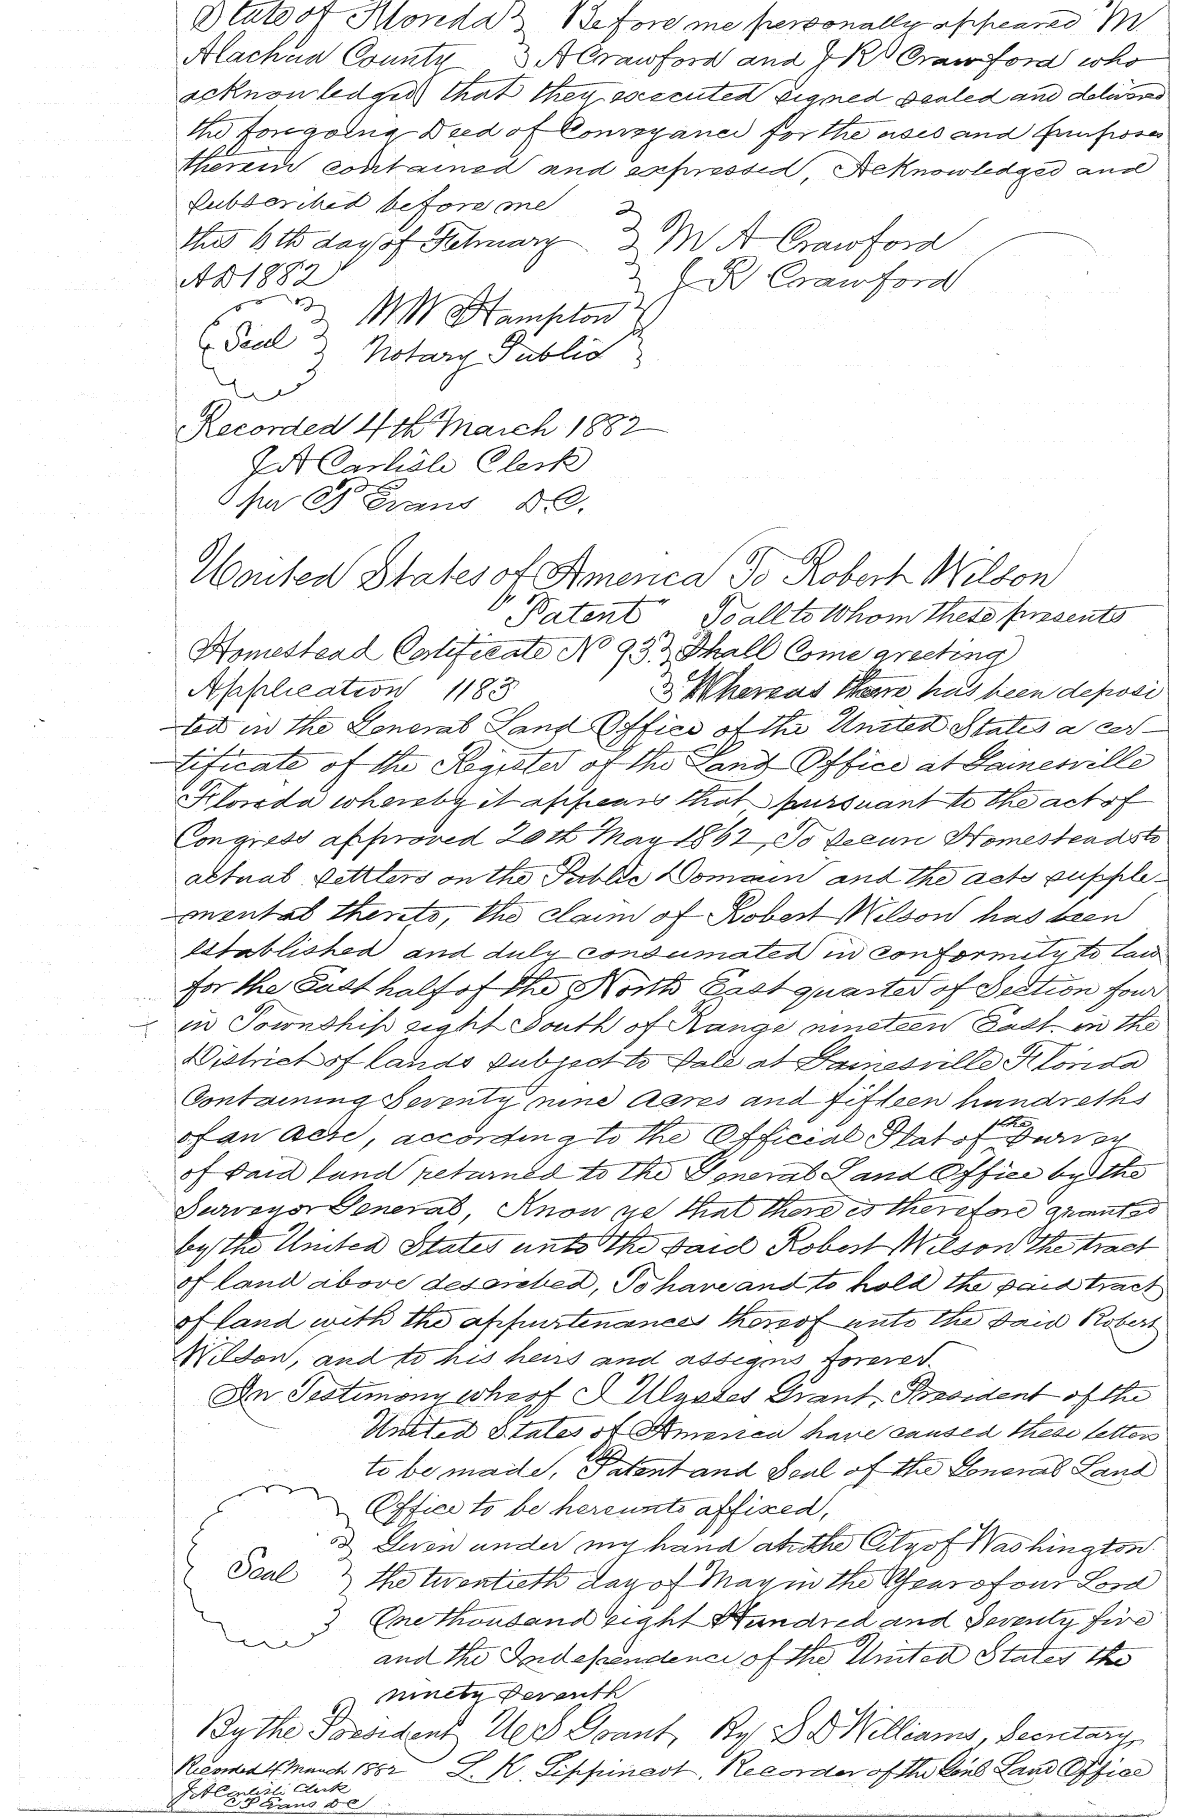 State of Florida } Before me personally appeared M
Alachua County } A Crawford and J R Crawford who
acknowledged that they executed signed sealed and delivered
the foregoing Deed of Conveyance for the uses and purposes
therein contained and expressed, Acknowledged and
Subscribed before me
this 6th day of February } M A Crawford
AD 1882 } J R Crawford
W W Hampton
Seal Notary Public
Recorded 4th March 1882
J A Carlisle Clerk
per P Evans D.C.
United States of America To Robert Wilson
"Patent" To all to Whom these presents
Homestead Certificate No 93. } Shall Come greeting
Application 1183 } Whereas there has been deposi
-ted in the General Land Office of the United States a cer-
-tificate of the Register of the Land Office at Gainesville
Florida whereby it appears that pursuant to the act of
Congress approved 20th May 1862, To Secure Homesteads to
actual settlers on the Public Domain and the acts supple-
-mental thereto, the claim of Robert Wilson has been
established and duly consumated in conformity to law
for the East half of the North East quarter of Section four
in Township eight South of Range nineteen East in the
District of lands subject to Sale at Gainesville Florida
Containing Seventy nine Acres and fifteen hundreths
of an Acre, according to the Official Plat of the Survey
of said land returned to the General Land Office by the
Surveyor General, Know ye that there is therefore granted
by the United States unto the said Robert Wilson the tract
of land above described, To have and to hold the said tract
of land with the appurtenances thereof unto the said Robert
Wilson, and to his heirs and assigns forever.
In Testimony wherof I Ulysses Grant, President of the
United States of America have caused these letters
to be made, Patent and Seal of the General Land
Office to be hereunto affixed,
Given under my hand at the City of Washington
Seal the twentieth day of May in the Year of our Lord
One thousand eight Hundred and Seventy five
and the Independence of the United States the
ninety seventh
By the President U S Grant, By S D Williams, Secretary,
Recorded 4 March 1882 L. K. Lippincot, Recorder of the Genl Land Office
J A Carlisle Clerk
P Evans DC